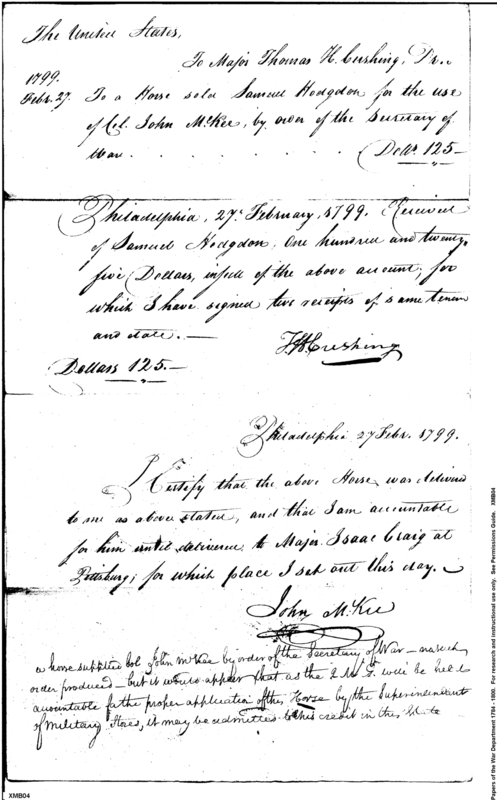 The United States,
To Major Thomas H. Cushing, Dr..
1799.
Febr. 27. To a Horse sold Samuel Hodgdon for the use
of Col. John McKee, by order of the Secretary of
War . . . . . . . . Dollr. 125—
Philadelphia, 27th February, 1799. Received
of Samuel Hodgdon, One hundred and twenty
five Dollars, in full of the above account, for
which I have signed two receipts of same tenor
and date. —
T. H. Cushing
Dollars 125.—
Philadelphia 27 Febr. 1799.
I Certify that the above Horse was delivered
to me as above stated, and that I am accountable
for him until delivered to Major Isaac Craig at
Pittsburg; for which place I set out this day. —
John McKee
a horse supplied Col John McKee by order of the Secretary of War — no such
order produced — but it would appear that as the 2 M. G. will be held
accountable for the proper application of this Horse by the Superintendant
of Military Stores, it may be admitted to his credit in this
XMB04
Papers of the War Department 1784 - 1800. For research and instructional use only. See Permissions Guide. XMB04